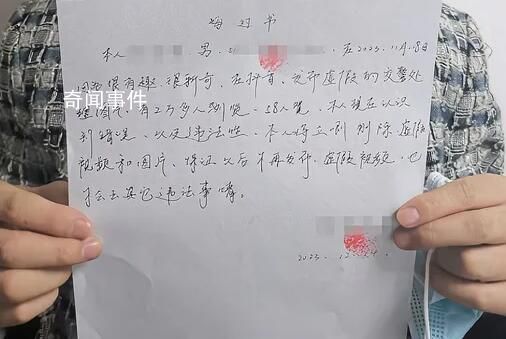 悔过书
本人 男, 在2023.11月8日
因为很有趣、很新奇、在抖音、发布虚假的交警处
理图片、有2万多人浏览、58人赞、本人现在认识
到错误、以及违法性、本人将立刻删除虚假
视频和图片、保证以后不再发布、虚假视频、也
不会去其它违法事情。
2023.12.
奇闻事件